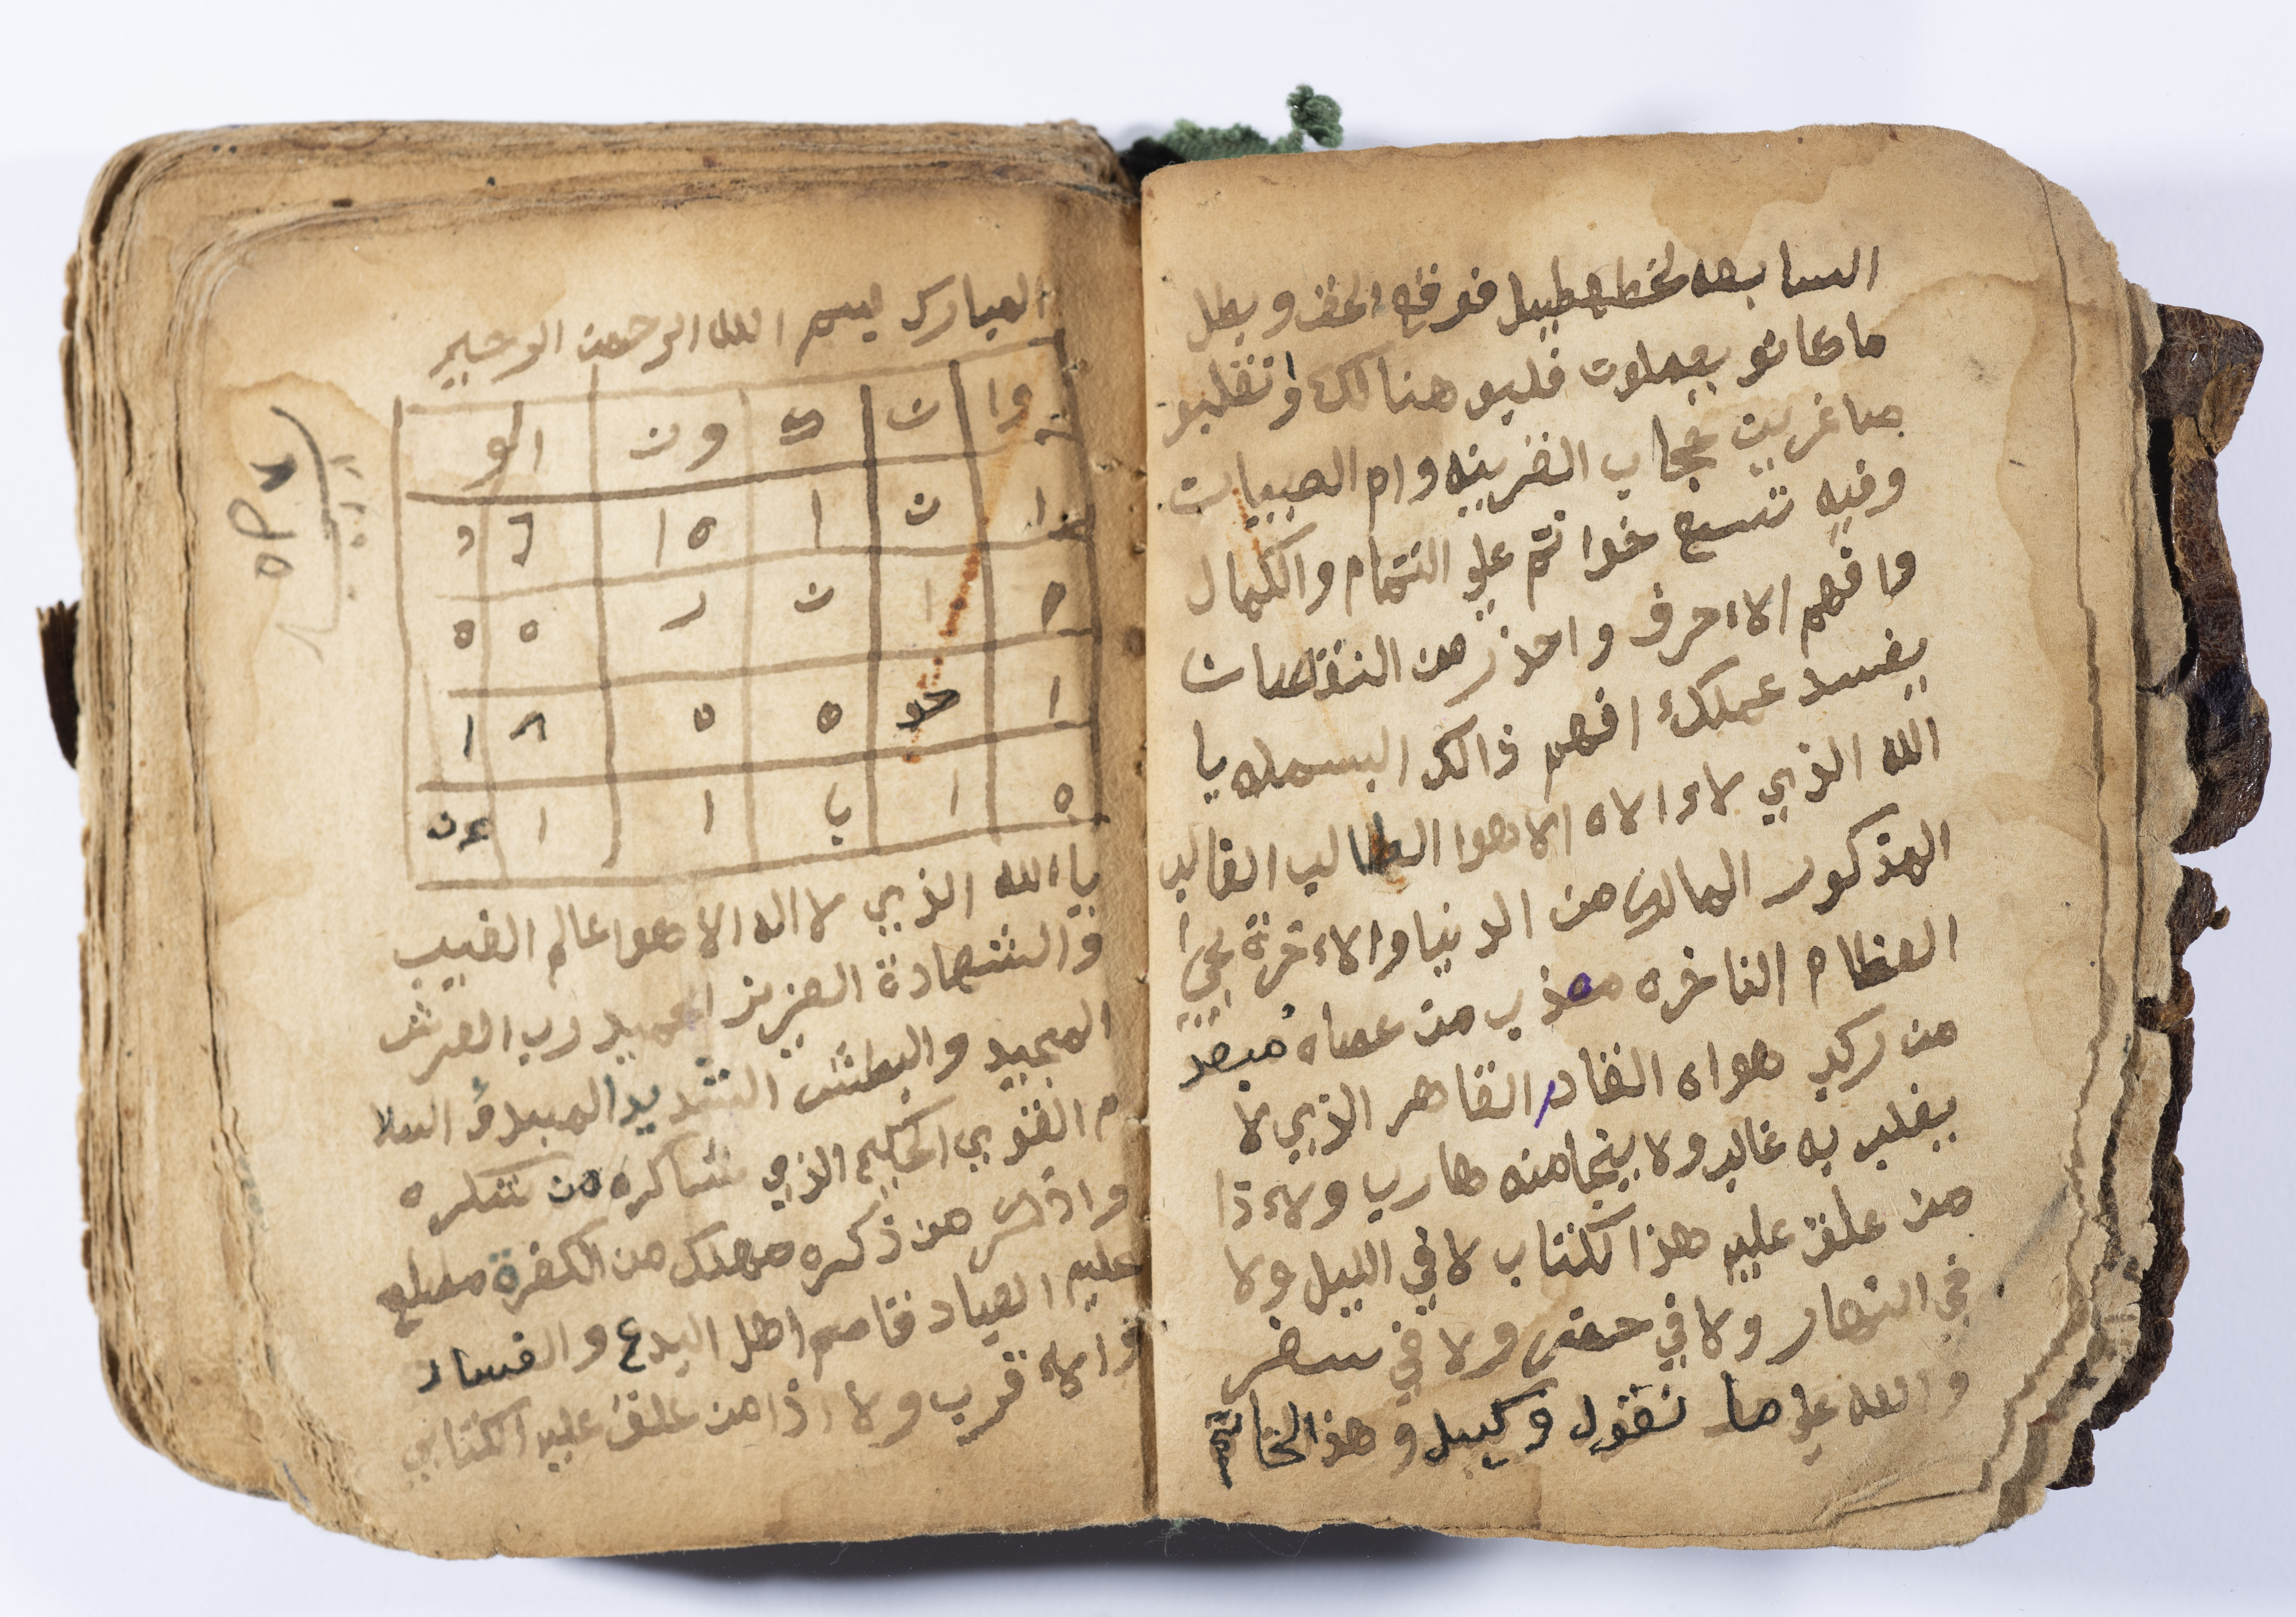 السابعه لخطهطيل فوقع الحق وبطل
ما كانو يعملون فلبو هنالك وانقلبو
صاغرين حجاب القرينه وام الصبيان
وفيه تسع خواتم علي التمام والكمال
وافهم الاءحرف واحذر من النقصان
يفسد عملك افهم ذالك البسمله يا
الله الذي لاء الاه الا هوا الطالب الغالب
المذكور المالك من الدنيا والاءخرة يحيي
العظام الناخره معذب من عصاه مبعد
من ركب هواه القادر القاهر الذي لا
يغلب به غالب ولا ينجا منه هارب ولاءذا
من علق عليه هذا الكتاب لا في الليل ولا
في النهار ولا في حضر ولا في سفر
والله علي ما نقول وكيل وهذ الخاتم
المبارك بسم الله الرحمن الرحيم
وا ن ه ون الو
ا ن ا ١٥
٥ ا ن ر ٥ ٥
ا ٥ ٥ ٨ ا
٥ ا ب ا ا عن
ياءالله الذي لا اله الا هوا عالم الغيب
والشهادة العزيز الحميد رب العرش
المجيد والبطش الشديد المبدؤ السلا
م القوي الحكيم الذي شاكره من شكره
واذاكر من ذكره مهلك من الكفرة مطلع
عليم العباد قاصم اهل البدع والفساد
قرب ولاءذا من علق عليه الكتابي